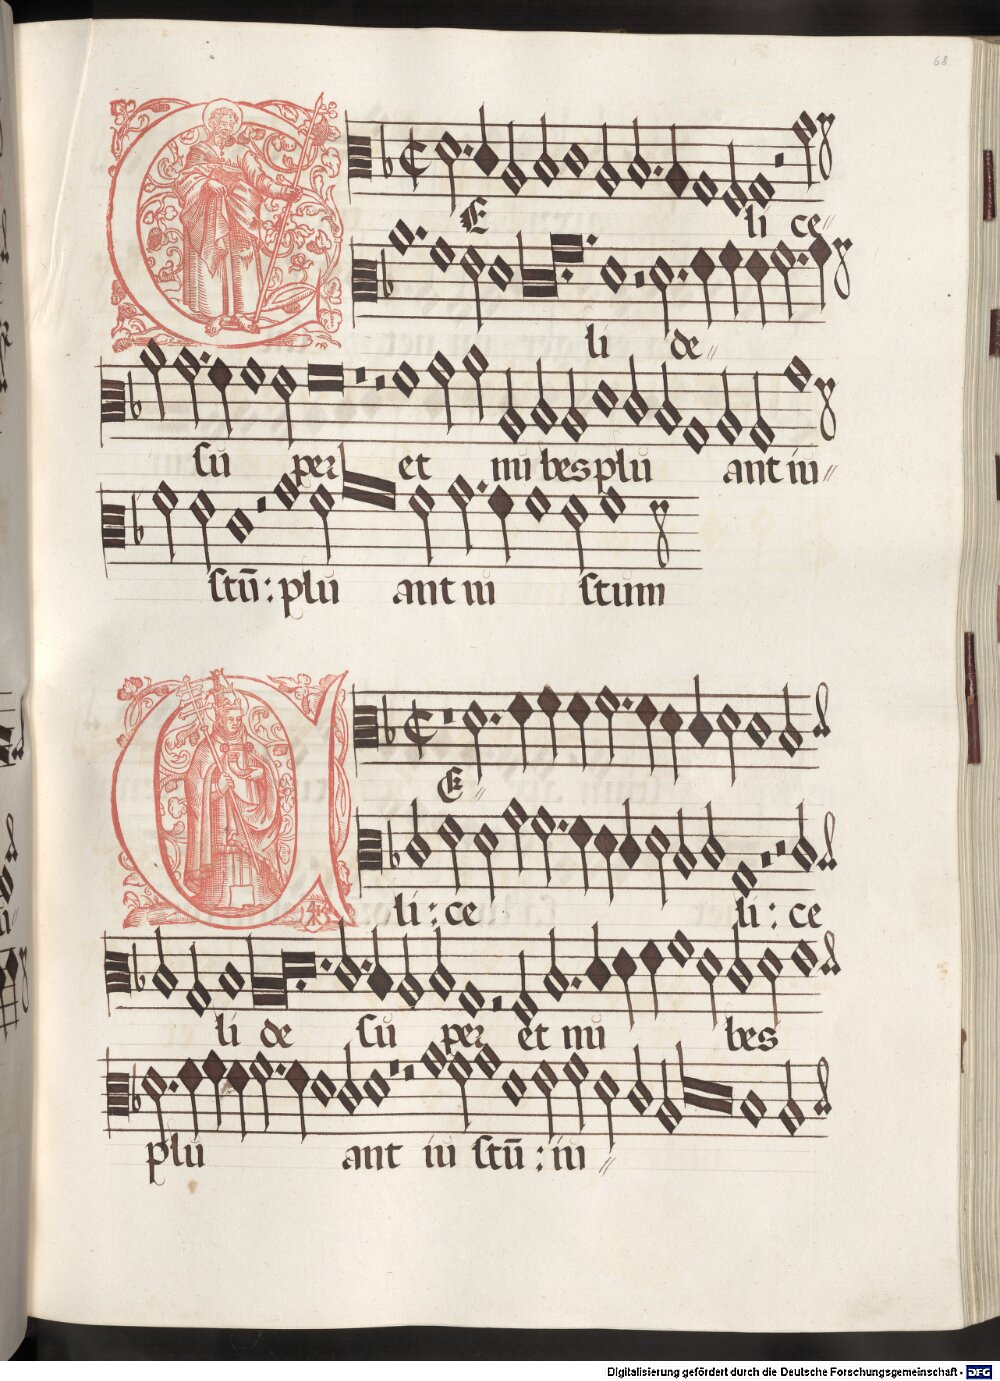 68
C E li ce
li de
su per et nu bes plu ant iu
stū : plu ant iu stum
C E
li : ce li : ce
li de su per et nu bes
plu ant iu stū : iu
Digitalisierung gefördert durch die Deutsche Forschungsgemeinschaft - DFG